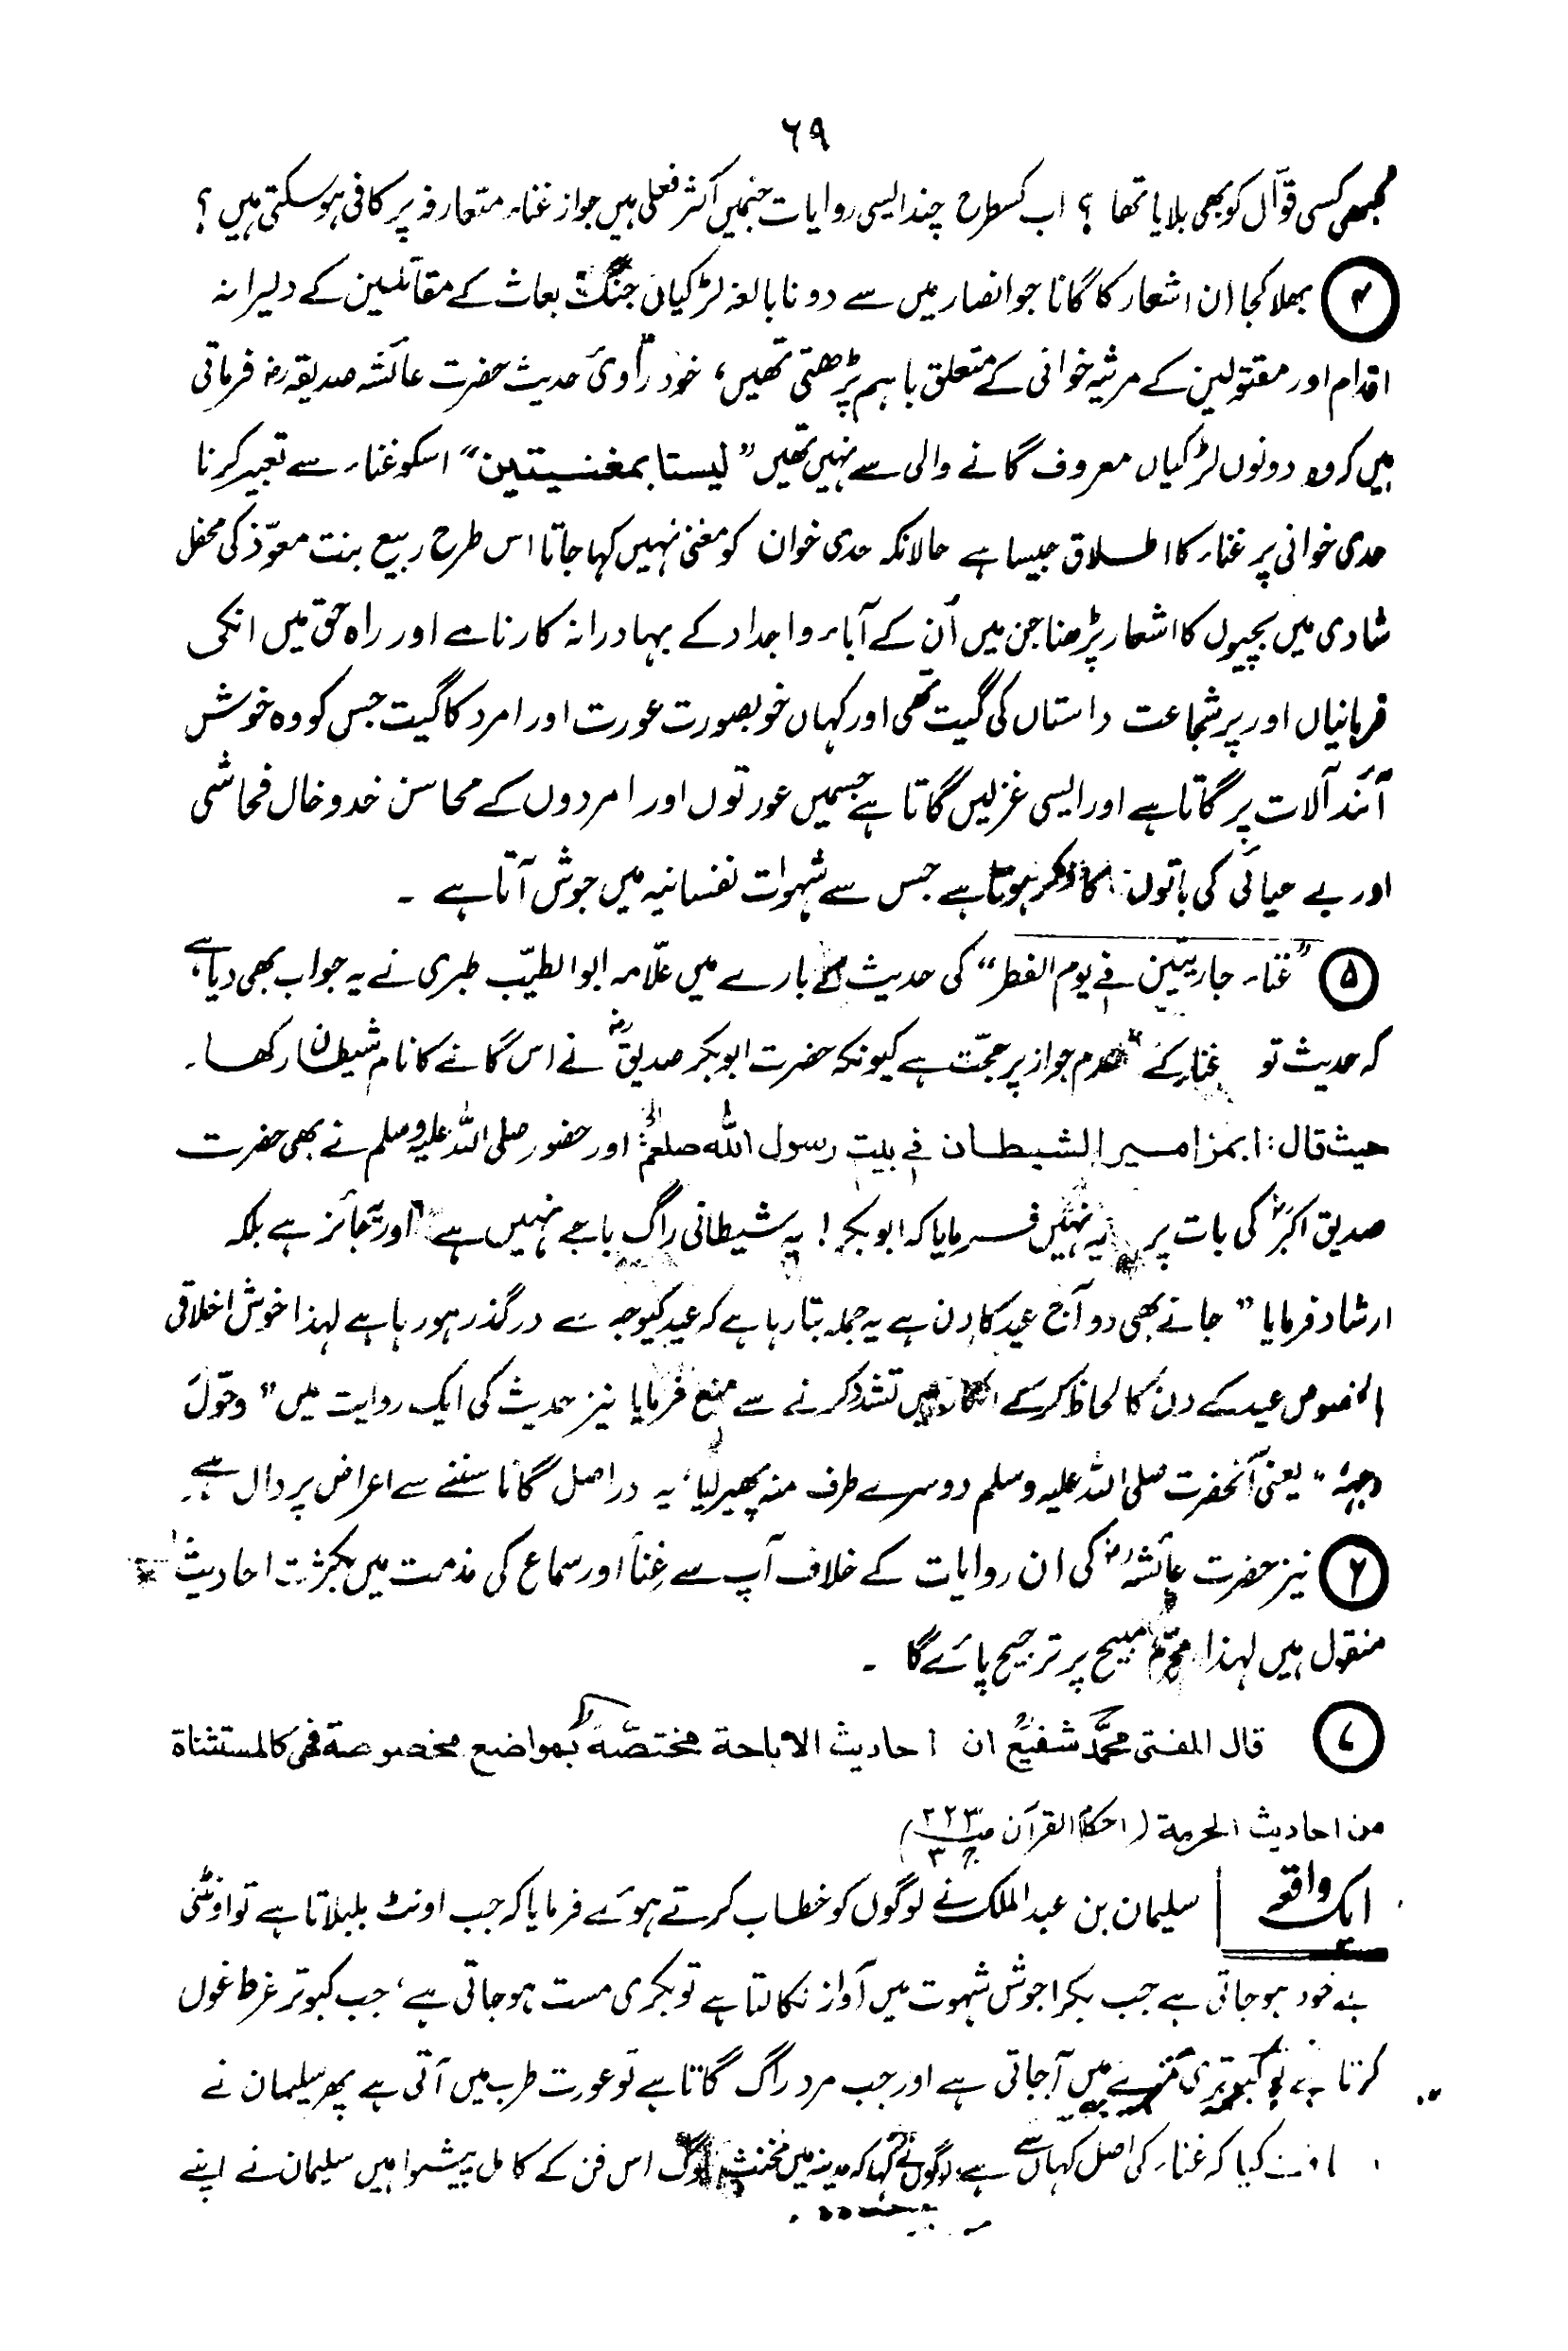 ٦٩
کبھی کسی قوّال کو بھی بلایا تھا ؟ اب کسطرح چند ایسی روایات جنمیں اکثر فعلی ہیں جواز غناء متعارفہ پر کافی ہو سکتی ہیں ؟
④ بھلا کجا ان اشعار کا گانا جو انصار میں سے دو نابالغہ لڑکیاں جنگ بعاث کے مقاتلین کے دلیرانہ
اقدام اور مقتولین کے مرثیہ خوانی کے متعلق باہم پڑھتی تھیں، خود راویٔ حدیث حضرت عائشہ صدیقہ رضؓ فرماتی
ہیں کہ وہ دونوں لڑکیاں معروف گانے والی سے نہیں تھیں " لیستا بمغنیتین " اسکو غناء سے تعبیر کرنا
حدی خوانی پر غناء کا اطلاق جیسا ہے حالانکہ حدی خوان کو مغنی نہیں کہا جاتا اس طرح ربیع بنت معوّذ کی محفل
شادی میں بچیوں کا اشعار پڑھنا جن میں اُن کے آباء و اجداد کے بہادرانہ کارنامے اور راہ حق میں انکی
قربانیاں اور پر شجاعت داستاں کی گیت تھی اور کہاں خوبصورت عورت اور امرد کا گیت جس کو وہ خوش
آئند آلات پر گاتا ہے اور ایسی غزلیں گاتا ہے جسمیں عورتوں اور امردوں کے محاسن خدوخال فحاشی
اور بے حیائی کی باتوں کا ذکر ہوتا ہے جس سے شہوات نفسانیہ میں جوش آتا ہے ۔
⑤ " غناء جاریتین فی یوم الفطر " کی حدیث کے بارے میں علّامہ ابو الطیّب طبری نے یہ جواب بھی دیا ہے
کہ حدیث تو غناء کے عدم جواز پر حجّت ہے کیونکہ حضرت ابوبکر صدیقؓ نے اس گانے کا نام شیطان رکھا ۔
حیث قال : ابمزامیر الشیطان فی بیت رسول اللہ صلعم الخ اور حضور صلی اللہ علیہ وسلم نے بھی حضرت
صدیق اکبرؓ کی بات پر یہ نہیں فرمایا کہ ابوبکر ! یہ شیطانی راگ باجے نہیں ہے اور یہ جائز ہے بلکہ
ارشاد فرمایا " جانے بھی دو آج عید کا دن ہے یہ جملہ بتا رہا ہے کہ عید کیوجہ سے درگذر ہو رہا ہے لہذا خوش اخلاقی
الخصوص عید کے دن کا لحاظ کر کے انکار میں تشدد کرنے سے منع فرمایا نیز حدیث کی ایک روایت میں " وحوّل
وجہہٗ " یعنی آنحضرت صلی اللہ علیہ وسلم دوسرے طرف منہ پھیر لیا، یہ دراصل گانا سننے سے اعراض پر دال ہے ۔
⑥ نیز حضرت عائشہؓ کی ان روایات کے خلاف آپ سے غِنا اور سماع کی مذمت میں بکثرت احادیث
منقول ہیں لہذا محرّم مبیح پر ترجیح پائے گا ۔
⑦ قال المفتی محمّد شفیعؒ ان احادیث الاباحۃ مختصّۃ بمواضع مخصوصۃ فھی کالمستثناۃ
من احادیث الحرمۃ ( احکام القرآن ص۲۲۳ ج۳ )
ایک واقعہ | سلیمان بن عبدالملک نے لوگوں کو خطاب کرتے ہوئے فرمایا کہ جب اونٹ بلبلاتا ہے تو اونٹنی
بے خود ہو جاتی ہے جب بکرا جوش شہوت میں آواز نکالتا ہے تو بکری مست ہو جاتی ہے، جب کبوتر غرط غول
کرتا ہے تو کبوتری مزے میں آجاتی ہے اور جب مرد راگ گاتا ہے تو عورت طرب میں آتی ہے پھر سلیمان نے
کیا کہ غناء کی اصل کہاں سے ہے لوگوں نے کہا کہ مدینہ میں مخنث لوگ اس فن کے کامل پیشوا ہیں سلیمان نے اپنے